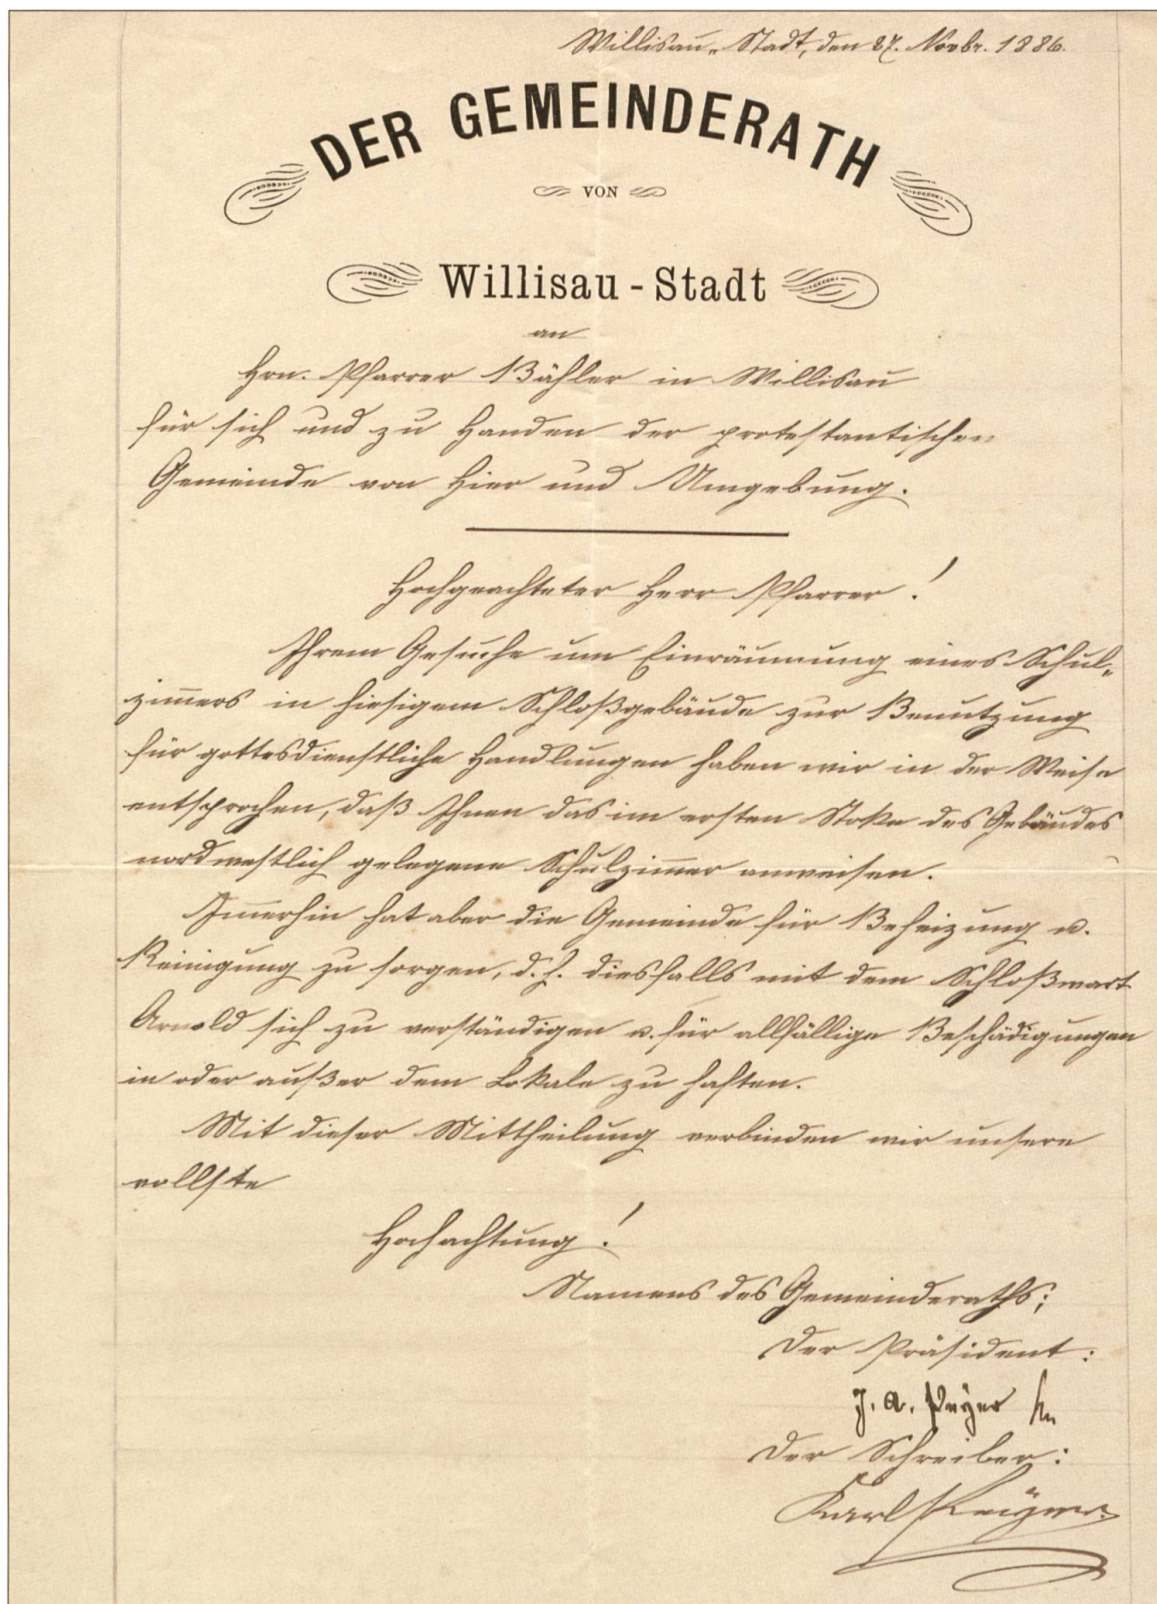 Willisau-Stadt, den 27. Novbr. 1886.
DER GEMEINDERATH
VON
Willisau-Stadt
an
Hrn. Pfarrer Bähler in Willisau
für sich und zu Handen der protestantischen
Gemeinde von hier und Umgebung.
Hochgeachteter Herr Pfarrer!
Ihrem Gesuche um Einräumung eines Schul-
zim̄ers in hiesigem Schloßgebäude zur Benutzung
für gottesdienstliche Handlungen haben wir in der Weise
entsprochen, daß Ihnen das im ersten Stoke des Gebäudes
nordwestlich gelegene Schulzim̄er anweisen.
Im̄erhin hat aber die Gemeinde für Beheizung u.
Reinigung zu sorgen, d. h. diesfalls mit dem Schloßwart
Arnold sich zu verständigen u. für allfällige Beschädigungen
in oder außer dem Lokale zu haften.
Mit dieser Mittheilung verbinden wir unsere
vollste
Hochachtung!
Namens des Gemeinderaths;
Der Präsident:
J. A. Peyer
Der Schreiber:
Karl